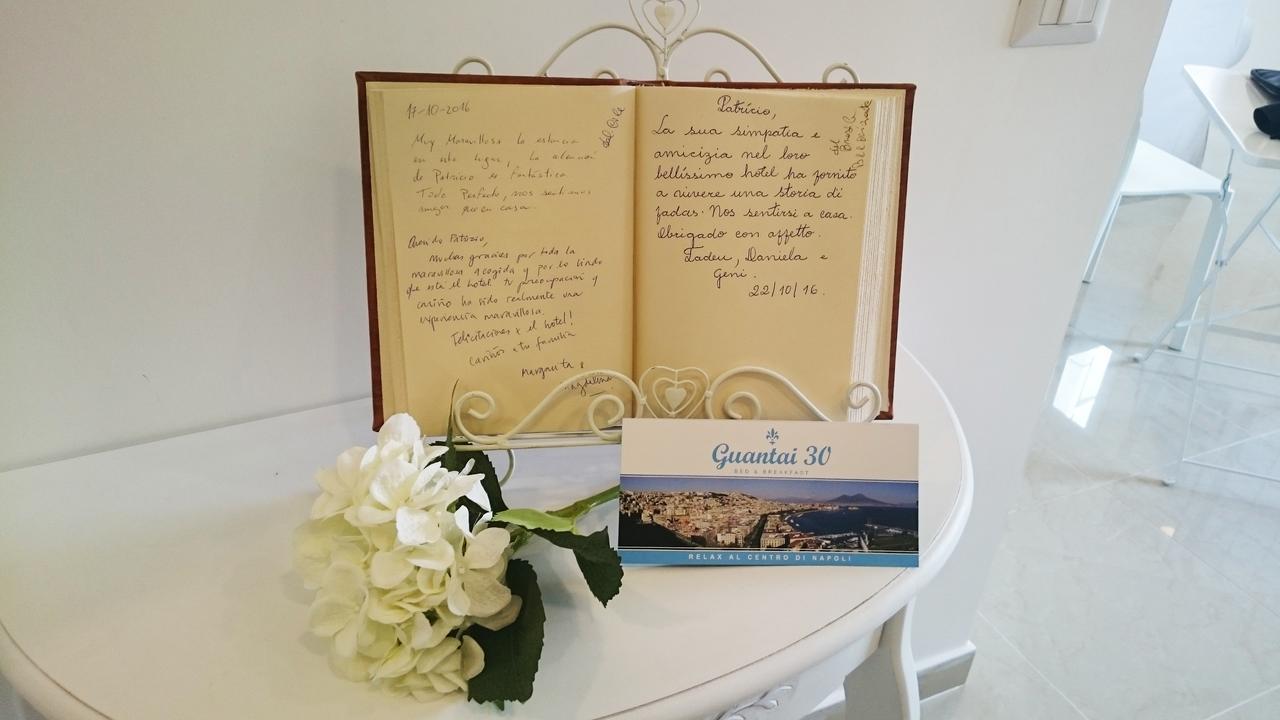 17-10-2016
del Cile
Muy Maravillosa la estancia
en este lugar, La atención
de Patricio es fantástica
Todo Perfecto, nos sentimos
mejor que en casa.
Querido Patrizio,
Muchas gracias por toda la
maravillosa acogida y por lo lindo
que está el hotel tu preocupación y
cariño ha sido realmente una
experiencia maravillosa.
Felicitaciones x el hotel!
Cariños a tu familia
Margarita &
Patrício,
La sua simpatia e
amicizia nel loro
bellíssimo hotel ha fornito
a vivere una storia di
fadas. Nos sentirsi a casa.
Obrigado con affetto.
Tadeu, Daniela e
Geni.
22/10/16.
del Brasile
Guantai 30
BED & BREAKFAST
RELAX AL CENTRO DI NAPOLI